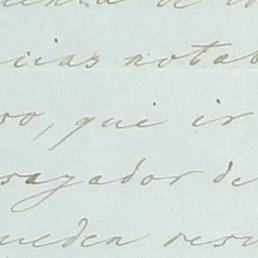 icias notab
so, que ir
sayador de
ueden resu